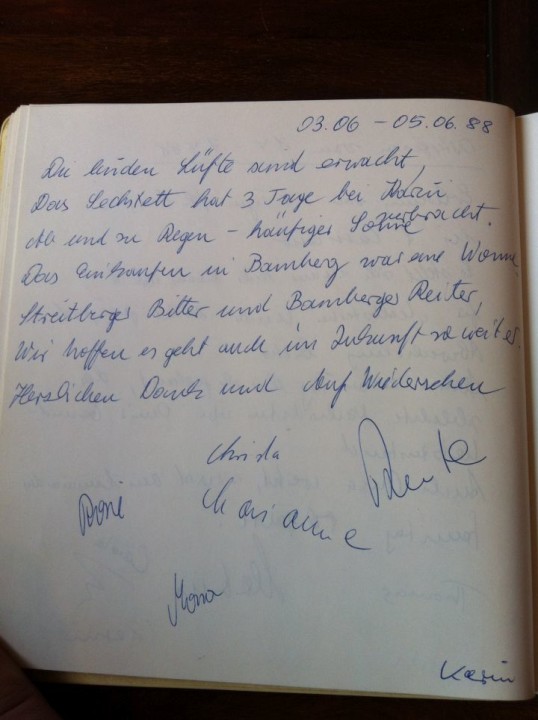 03.06 – 05.06.88
Die linden Lüfte sind erwacht,
Das Sechstett hat 3 Tage bei Karin
verbracht.
Ab und zu Regen – häufiger Sonne
Das Einkaufen in Bamberg war eine Wonne
Streitberger Bitter und Bamberger Reiter,
Wir hoffen es geht auch in Zukunft so weiter.
Herzlichen Dank und Auf Wiedersehen
Christa
Rosi
Marianne
Mona
Karin